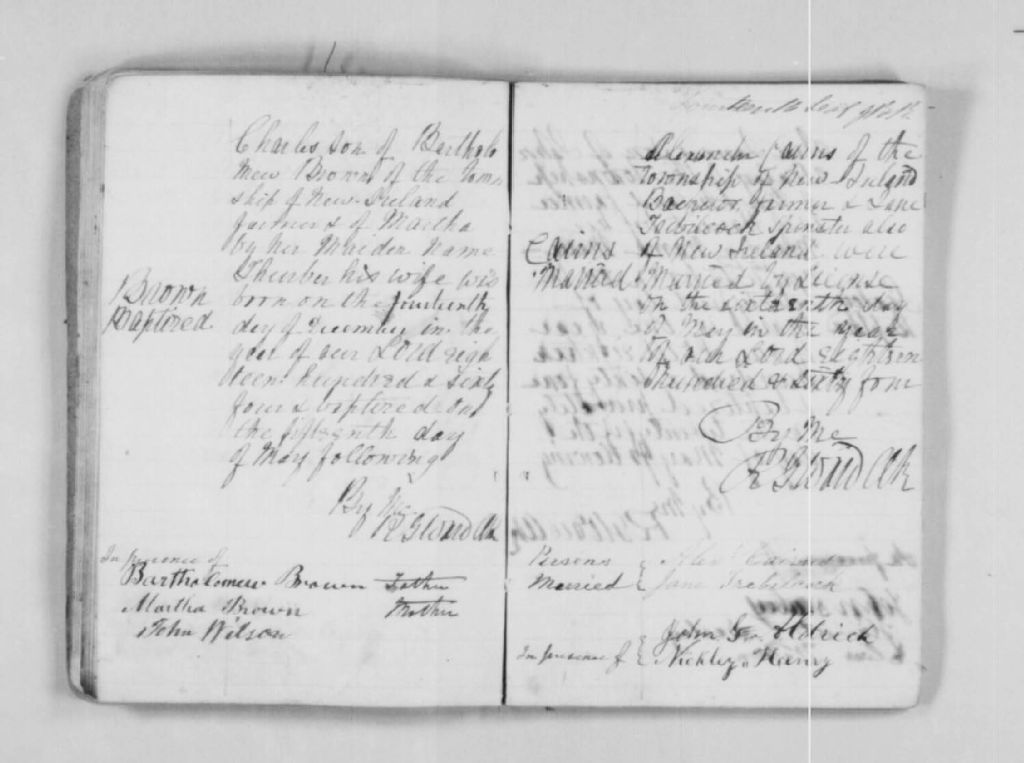 Charles son of Bartholo
mew Brown of the Town
ship of New Ireland
farmer & of Martha
by her Maiden name
Thurber his wife was
born on the fourteenth
day of December in the
year of our Lord eigh
teen hundred & sixty
four & baptized on
the fifteenth day
of May following
Brown
Baptized
By Me
R G Ward
In presence of
Bartholomew Brown Father
Martha Brown Mother
John Wilson
Cairns of the
Township of New Ireland
Bachelor farmer & Jane
Spinster also
of New Ireland were
Married by License
on the sixteenth day
of May in the year
of our Lord eighteen
hundred & sixty four
Cairns
Married
By Me
R G Ward
Persons
Married
Alex Cairns
Jane
In presence of
John G. Aldrich
Nickley Harry